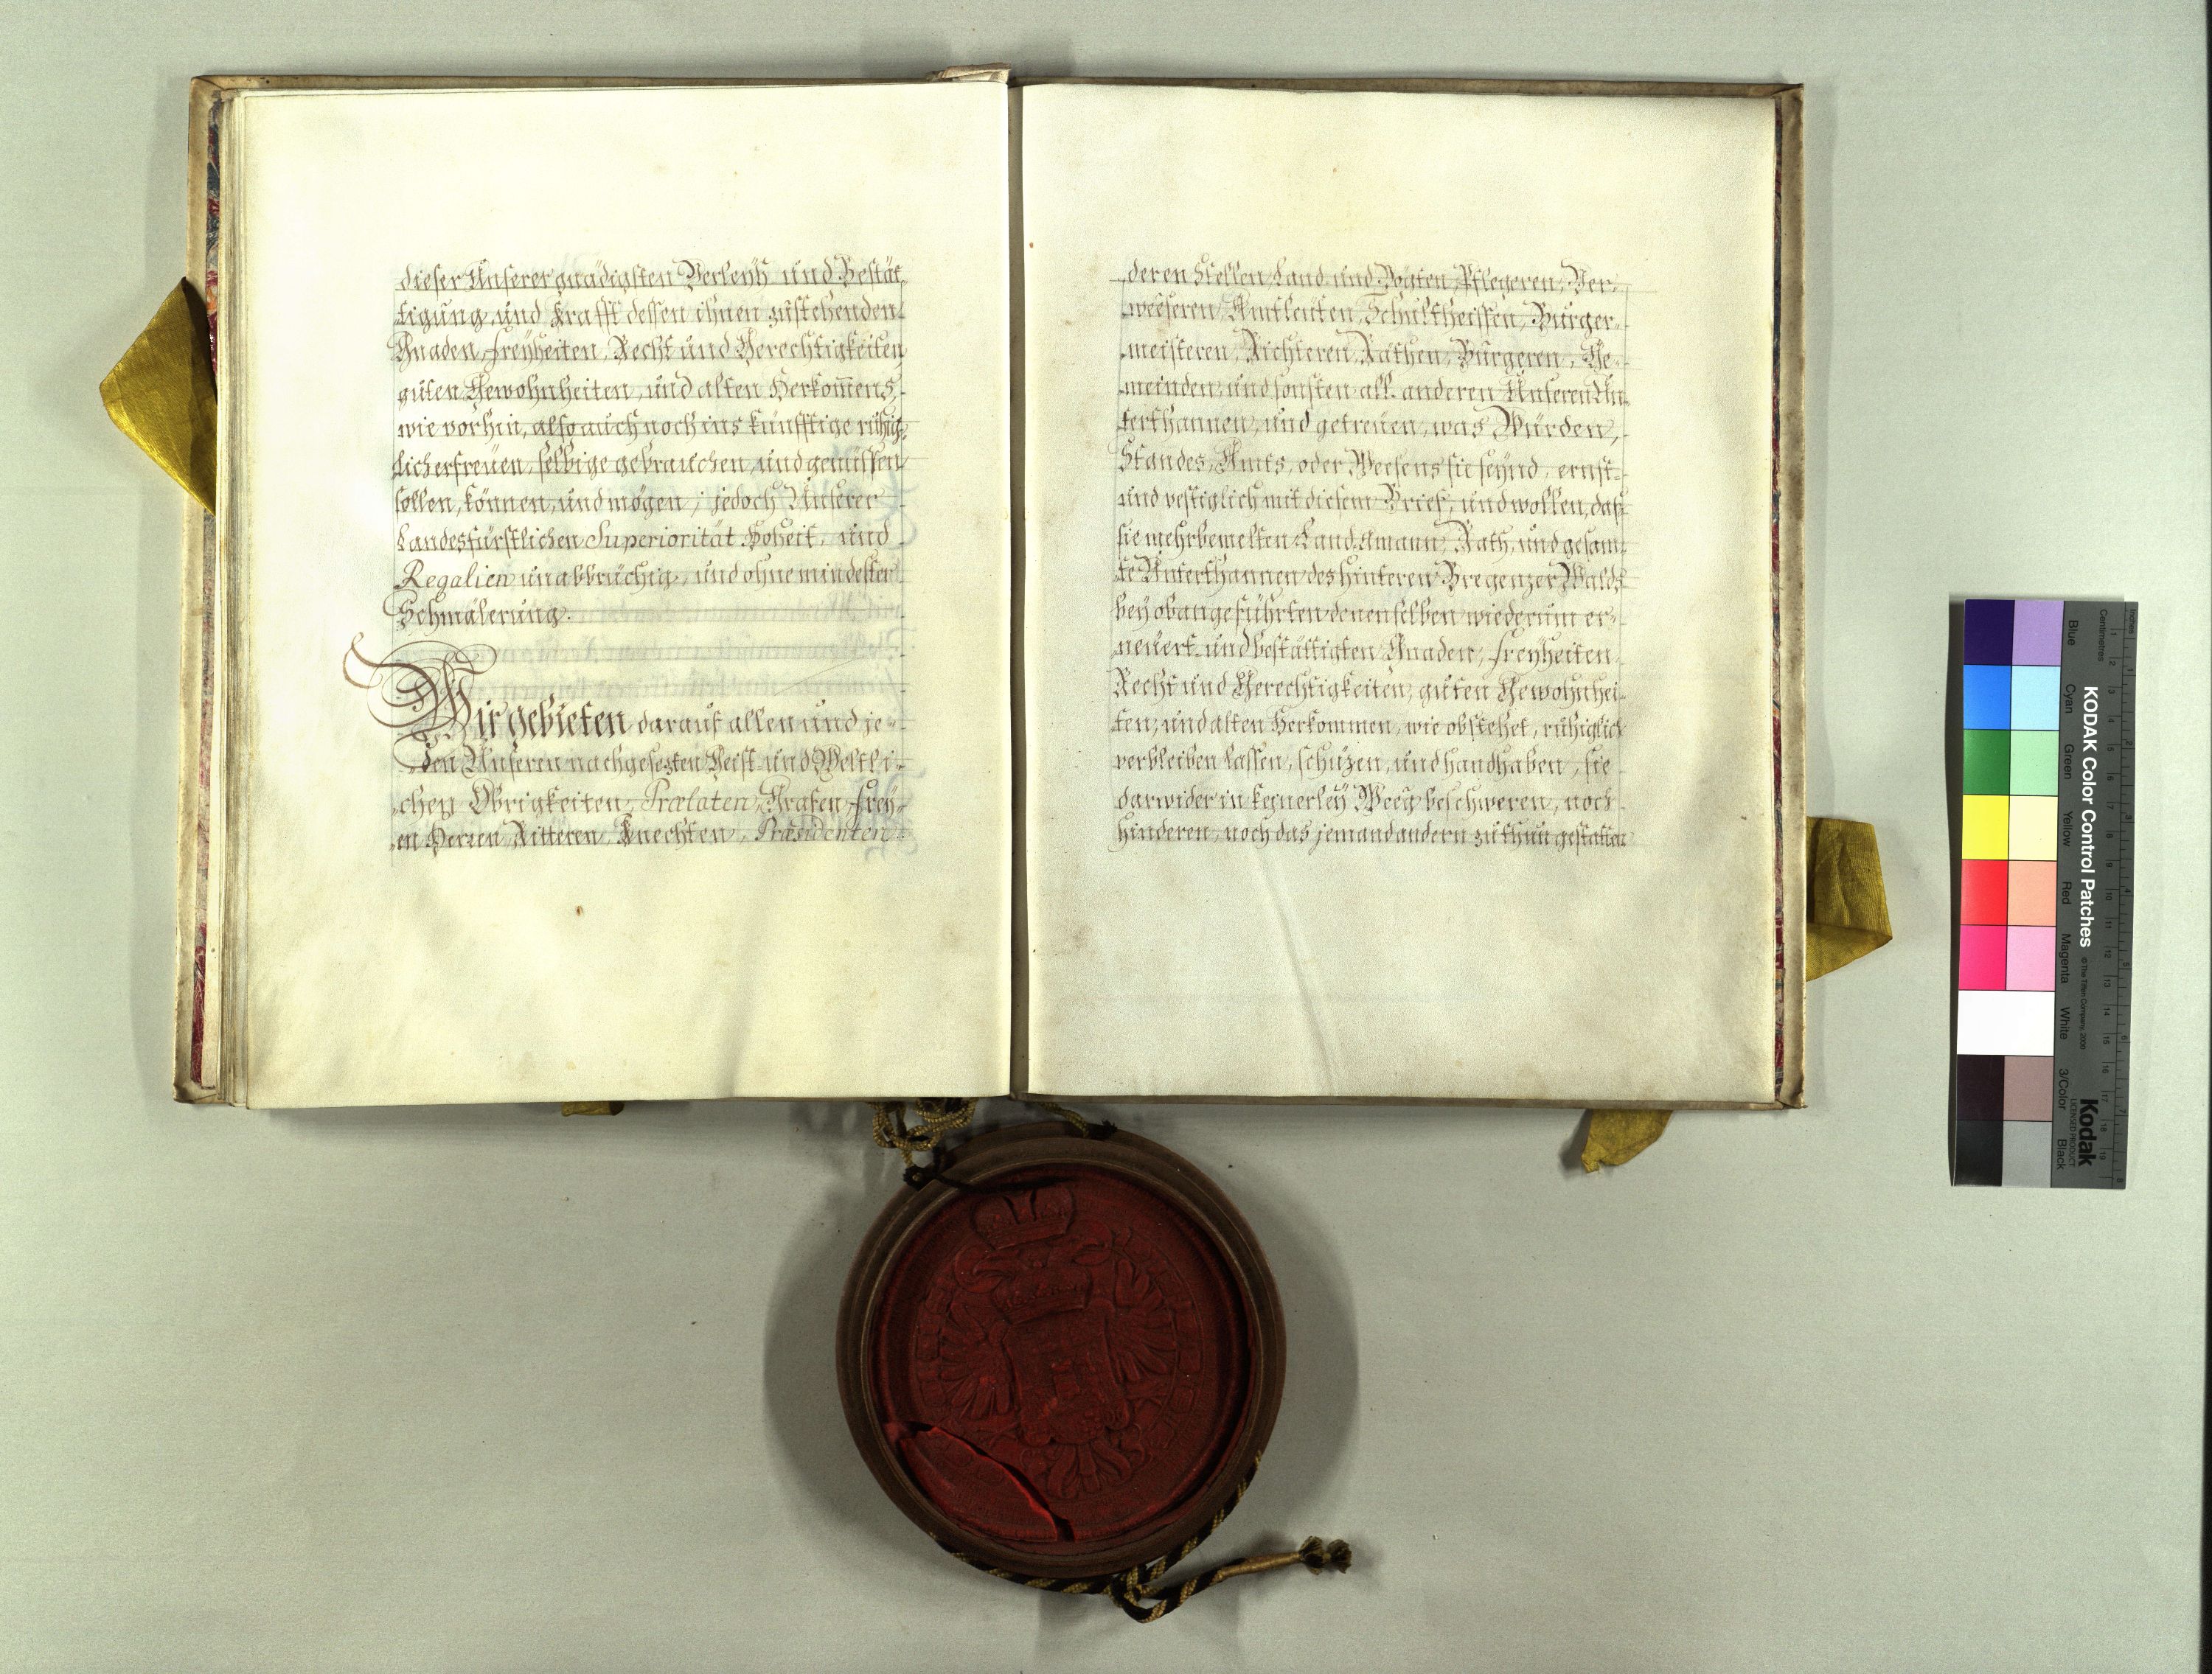 dieser Unserer gnädigsten Verleyh und Bestät,
tigung, und Krafft dessen ihnen zustehenden
Gnaden, Freyheiten, Recht und Gerechtigkeiten
guten Gewohnheiten, und alten Herkom̅ens,
wie vorhin, also auch noch ins künfftige rühig,
lich erfreuen, selbige gebrauchen, und geniessen
sollen, können, und mögen; jedoch Unserer
Landesfürstlichen Superiorität Hoheit, und
Regalien unabbrüchig, und ohne mindester
Schmälerung.
Wir gebieten darauf allen und je-
den Unseren nachgesezten Geist- und Weltli-
chen Obrigkeiten, Prælaten, Grafen, Frey-
en Herren, Ritteren, Knechten, Præsidenten
deren Stellen, Land und Vögten, Pflegeren, Ver-
weeseren, Amtleuten, Schultheissen, Burger-
meisteren, Richteren, Räthen, Burgeren, Ge-
meinden, und sonsten all- anderen Unseren Un-
terthannen, und getreuen, was Würden,
Standes, Amts, oder Weesens sie seynd, ernst-
und vestiglich mit diesem Brief, und wollen, daß
sie mehrbemelten Land Amann, Rath, und gesam-
te Unterthannen des hinteren Bregenzer Walds
bey obangeführten denenselben wiederum er-
neuert- und bestättigten Gnaden, Freyheiten
Recht und Gerechtigkeiten, guten Gewohnhei-
ten, und alten Herkommen, wie obstehet, rühiglich
verbleiben lassen, schüzen, und handhaben, sie
darwider in keynerley Weeg beschweren, noch
hinderen, noch das jemand andern zu thun gestatten
KODAK Color Control Patches
© The Tiffen Company, 2000
Kodak
LICENSED PRODUCT
Blue Cyan Green Yellow Red Magenta White 3/Color Black
Inches
Centimetres